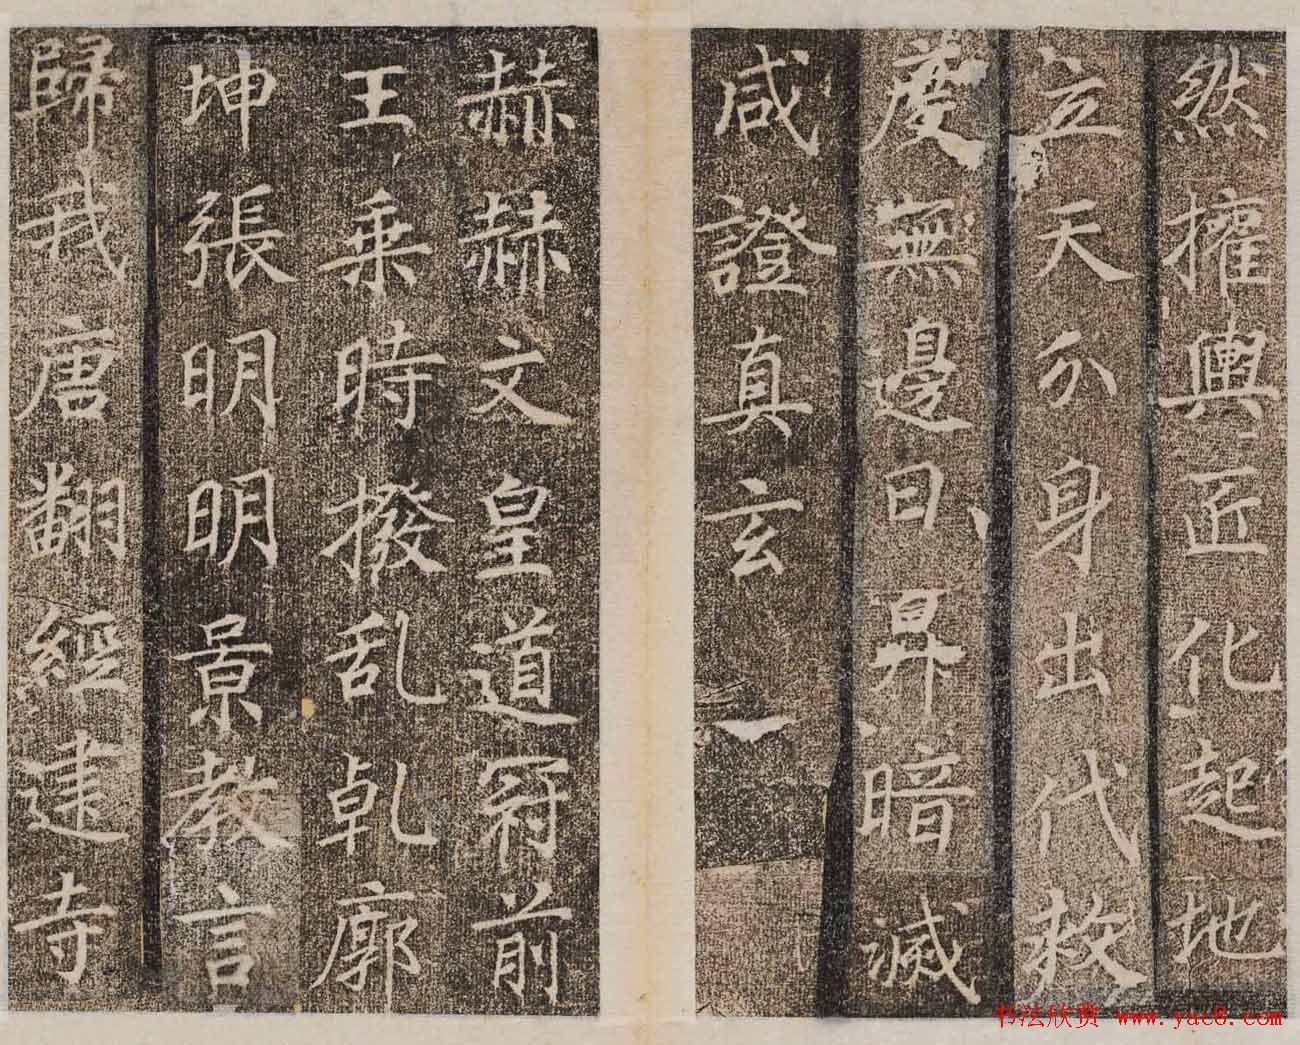 然擁輿匠化起地
立天分身出代救
度無邊日昇暗滅
咸證真玄
赫赫文皇道冠前
王乗時撥乱乹廓
坤張明明景教言
歸我唐翻經建寺
书法欣赏 www.yac8.com